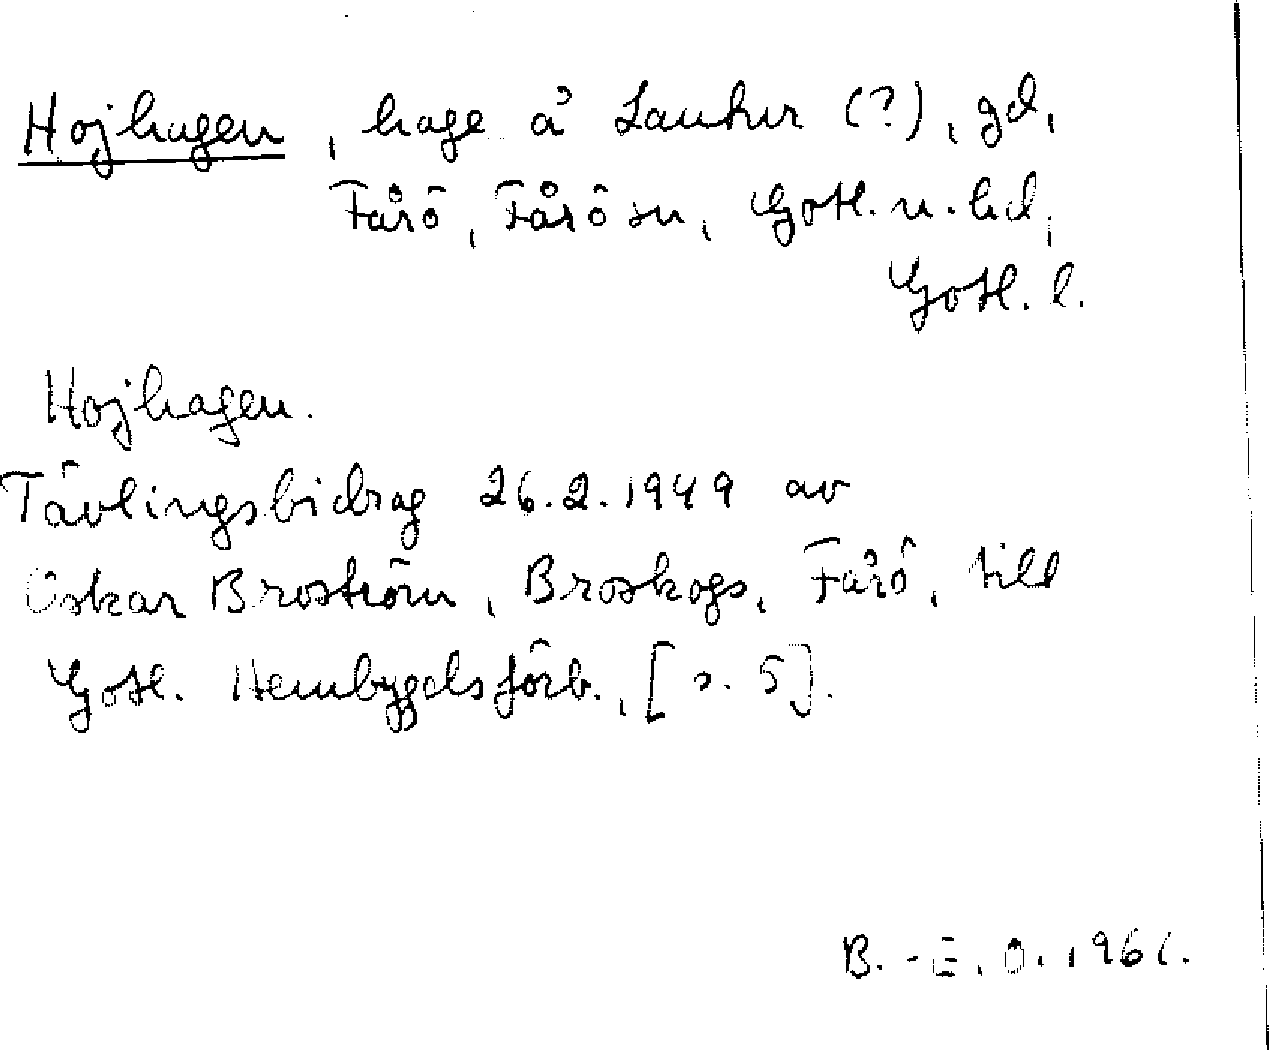 Hojhagen, hage å Lauhur (?), gd,
Fårö, Fårö sn, Gotl. n. hd,
Gotl. l.
Hojhagen.
Tävlingsbidrag 26.2.1949 av
Oskar Broström, Broskogs, Fårö, till
Gotl. Hembygdsförb., [s. 5].
B.-E. Ö. 1961.